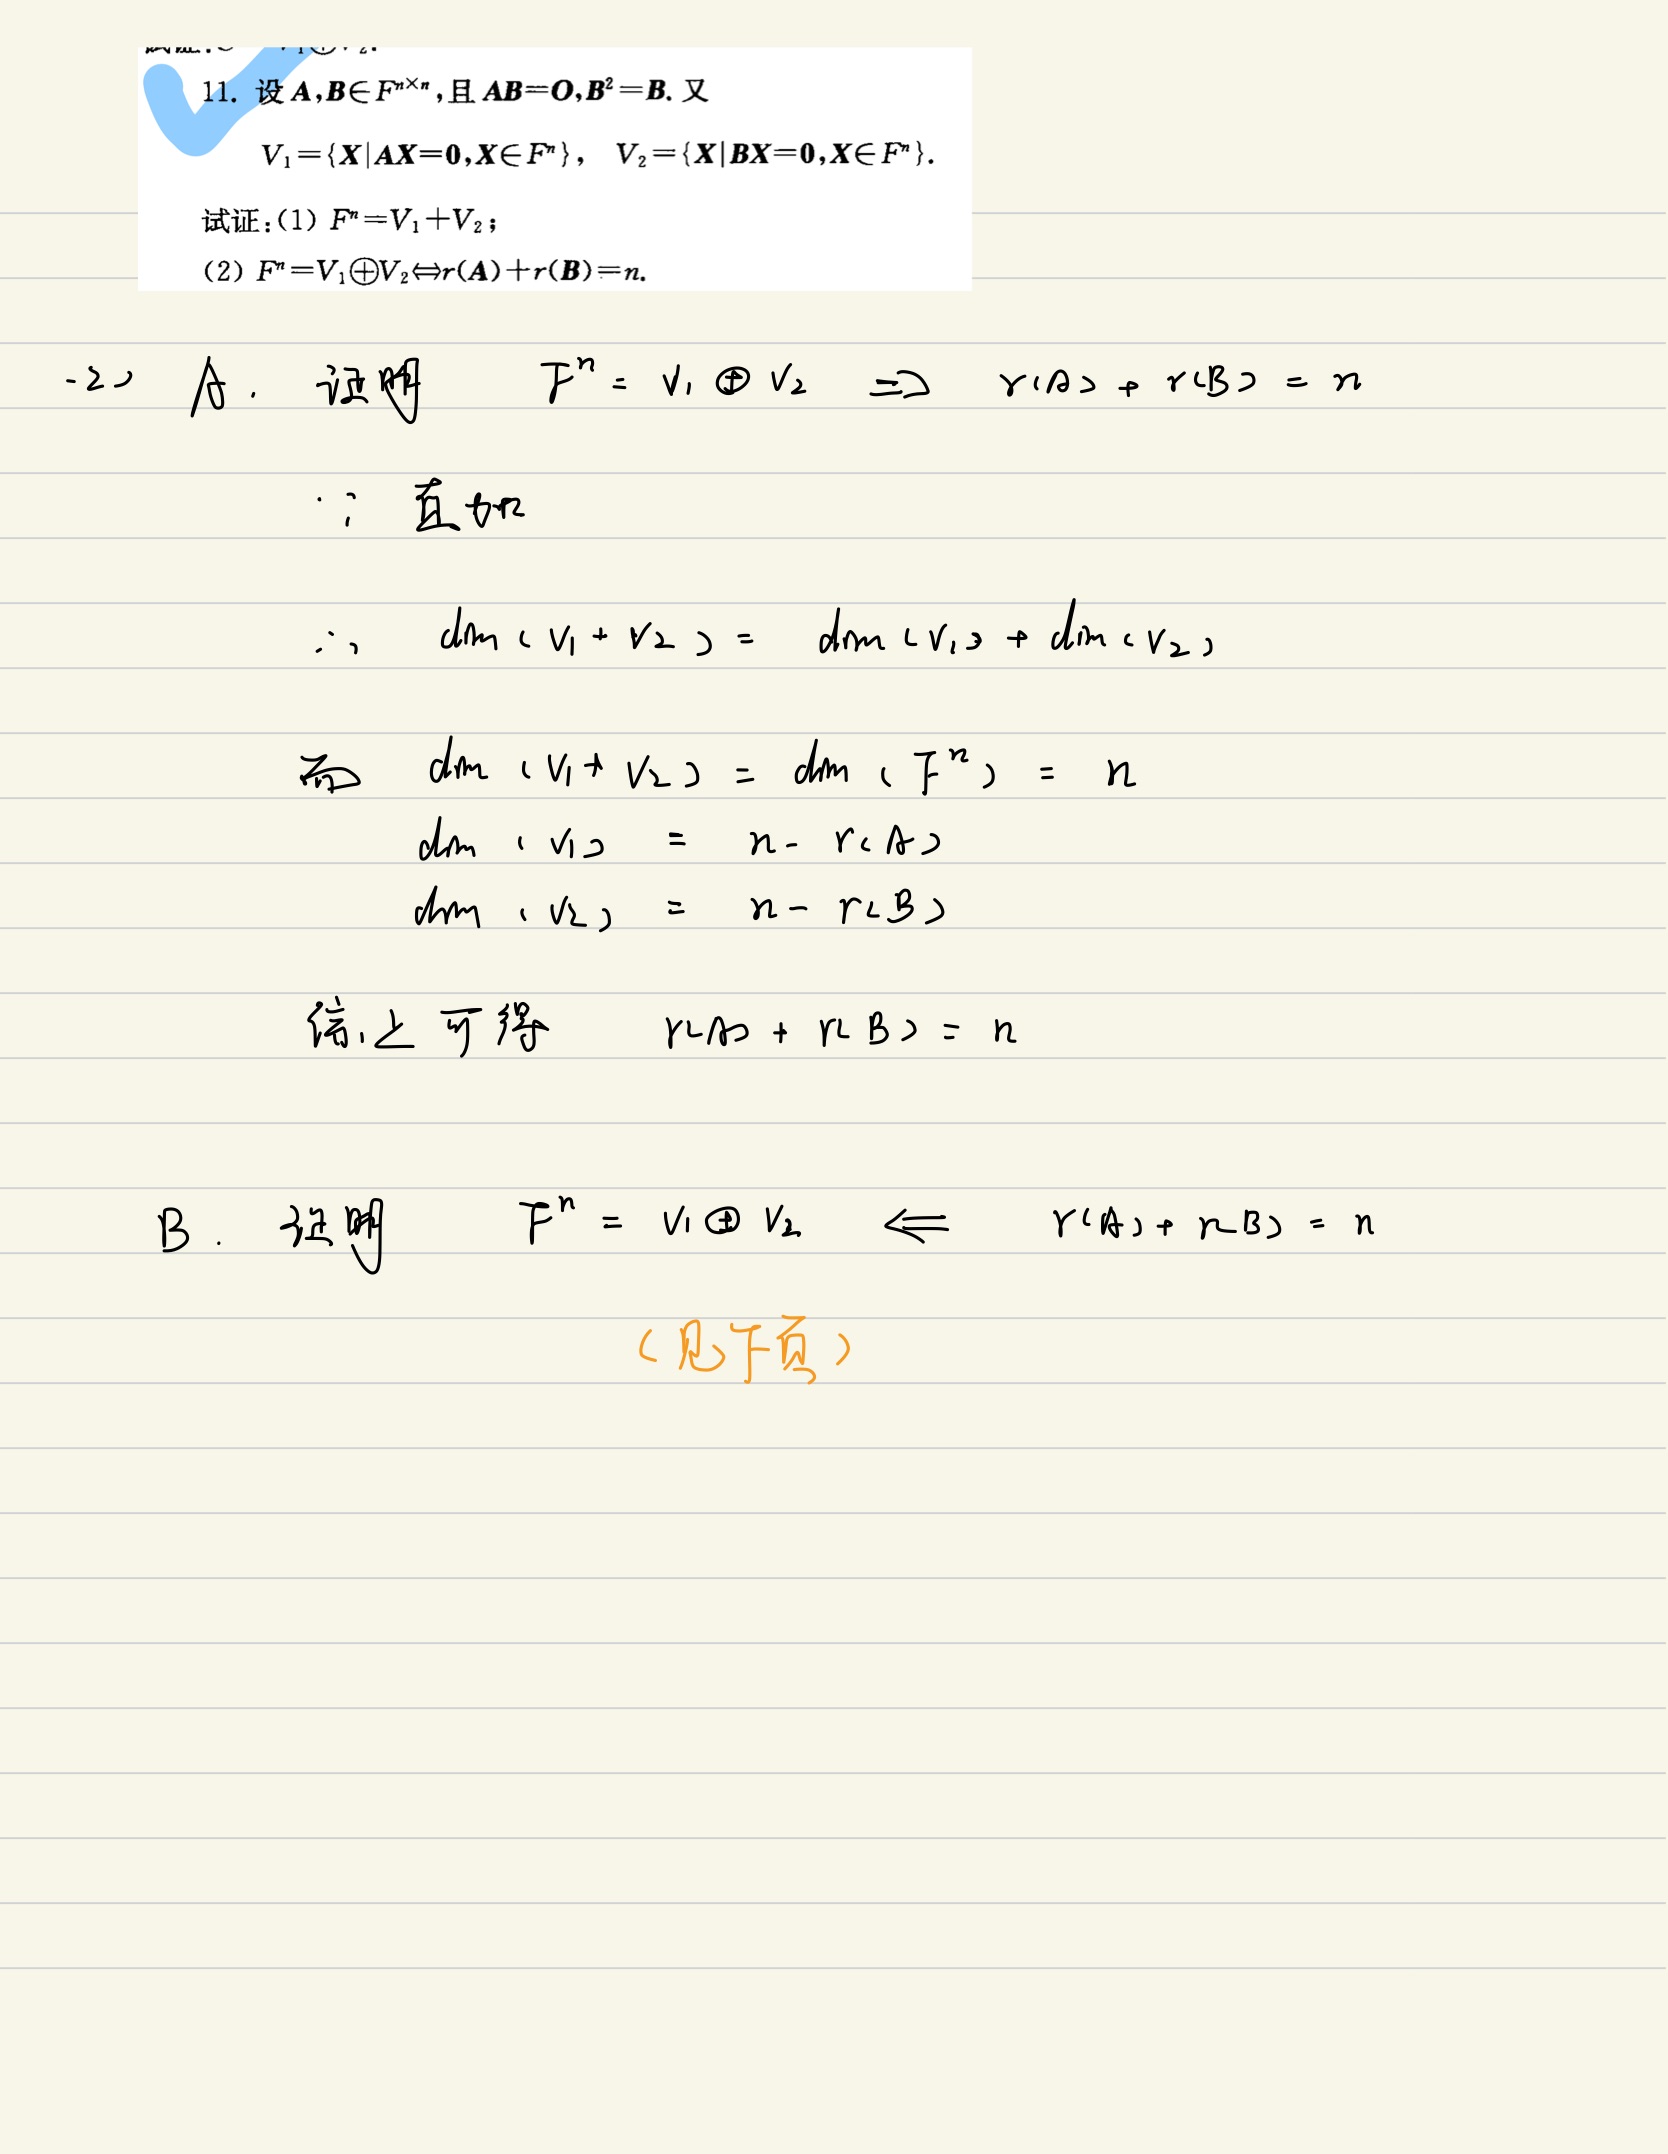 11. 设 A,B∈Fⁿˣⁿ,且 AB=O,B²=B. 又
V₁={X|AX=0,X∈Fⁿ}, V₂={X|BX=0,X∈Fⁿ}.
试证:(1) Fⁿ=V₁+V₂;
(2) Fⁿ=V₁⊕V₂⇔r(A)+r(B)=n.
(2) A. 证明 Fⁿ = V₁ ⊕ V₂ ⇒ r(A) + r(B) = n
∵ 直和
∴ dim(V₁+V₂) = dim(V₁) + dim(V₂)
而 dim(V₁+V₂) = dim(Fⁿ) = n
dim(V₁) = n - r(A)
dim(V₂) = n - r(B)
综上可得 r(A) + r(B) = n
B. 证明 Fⁿ = V₁ ⊕ V₂ ⇐ r(A) + r(B) = n
(见下页)